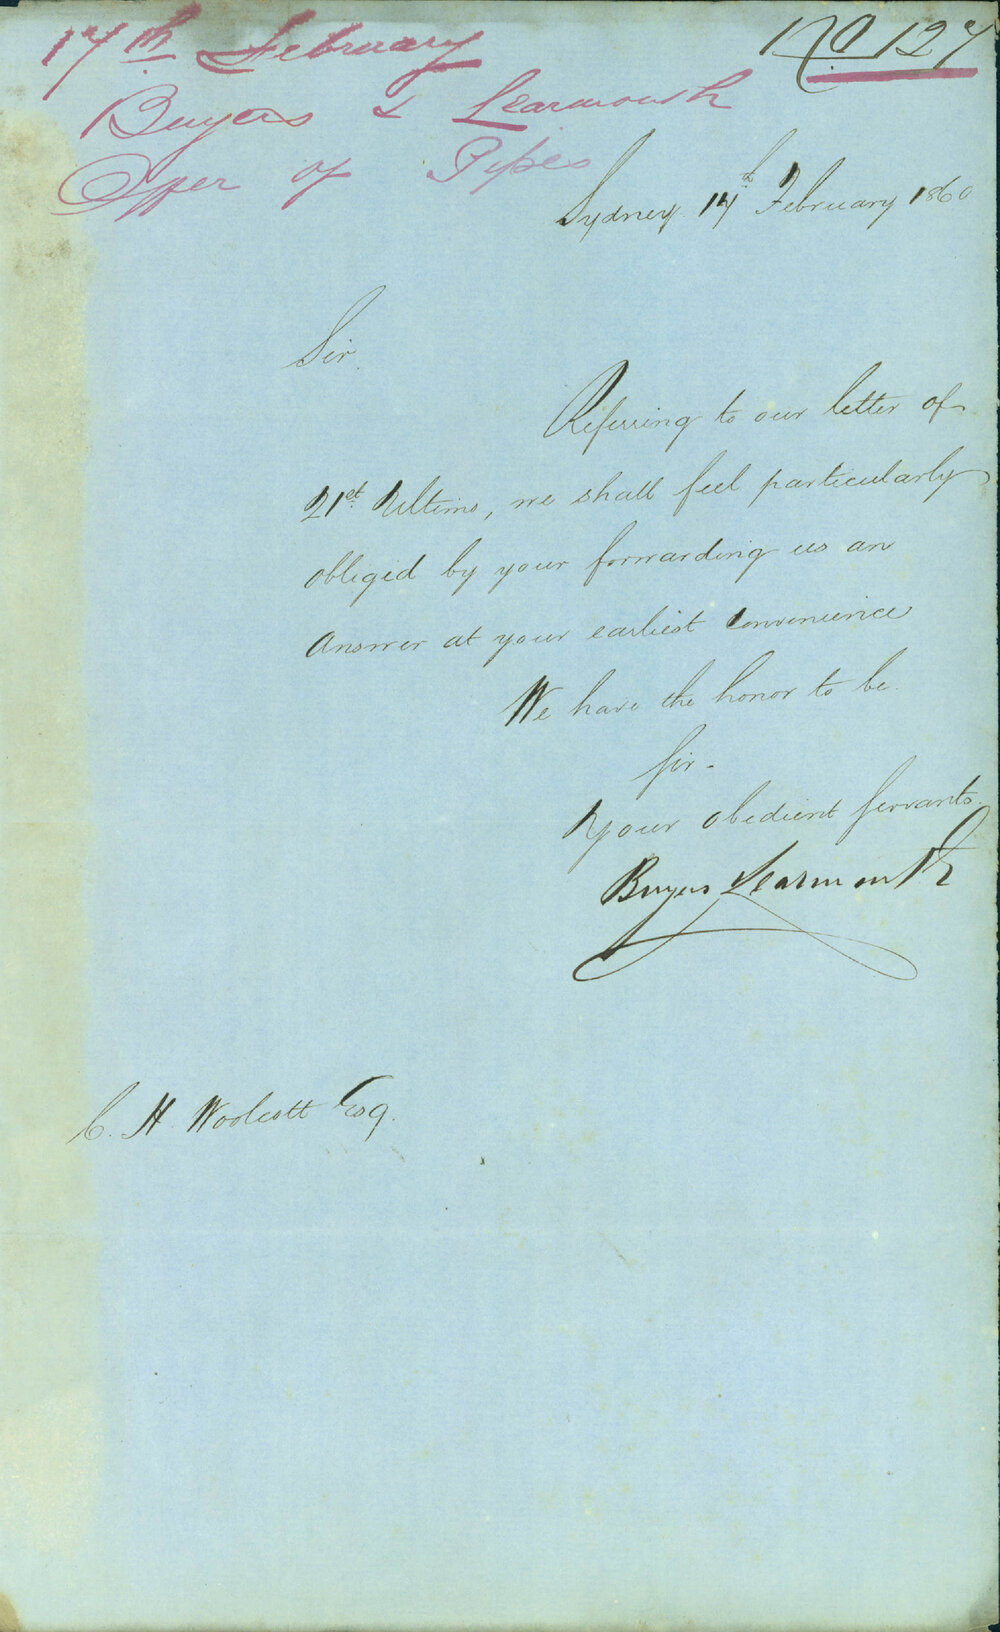 17th February
No 127
Buyers & Learmonth
Offer of Pipes
Sydney 17th February 1860
Sir
Referring to our letter of
21st Ultimo, we shall feel particularly
obliged by your forwarding us an
answer at your earliest convenience
We have the honor to be.
Sir -
Your obedient Servants.
Buyers Learmonth
C. H. Woolcott Esq.